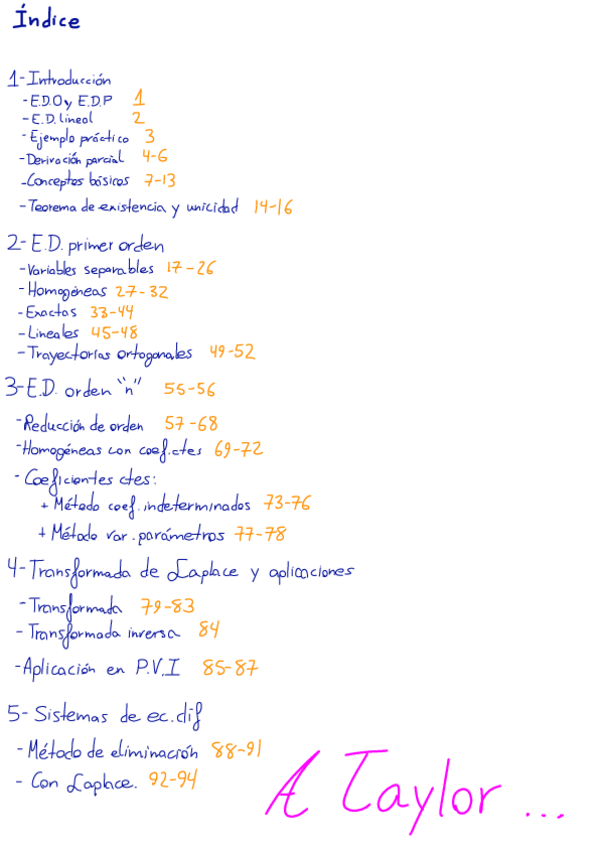 Índice
1-Introducción
-E.D.O y E.D.P 1
-E.D. lineal 2
-Ejemplo práctico 3
-Derivación parcial 4-6
-Conceptos básicos 7-13
-Teorema de existencia y unicidad 14-16
2-E.D. primer orden
-Variables separables 17-26
-Homogéneas 27-32
-Exactas 33-44
-Lineales 45-48
-Trayectorias ortogonales 49-52
3-E.D. orden "n" 55-56
-Reducción de orden 57-68
-Homogéneas con coef.ctes 69-72
-Coeficientes ctes:
+ Método coef. indeterminados 73-76
+ Método var. parámetros 77-78
4-Transformada de Laplace y aplicaciones
-Transformada 79-83
-Transformada inversa 84
-Aplicación en P.V.I 85-87
5-Sistemas de ec.dif
-Método de eliminación 88-91
-Con Laplace. 92-94
A Taylor ...